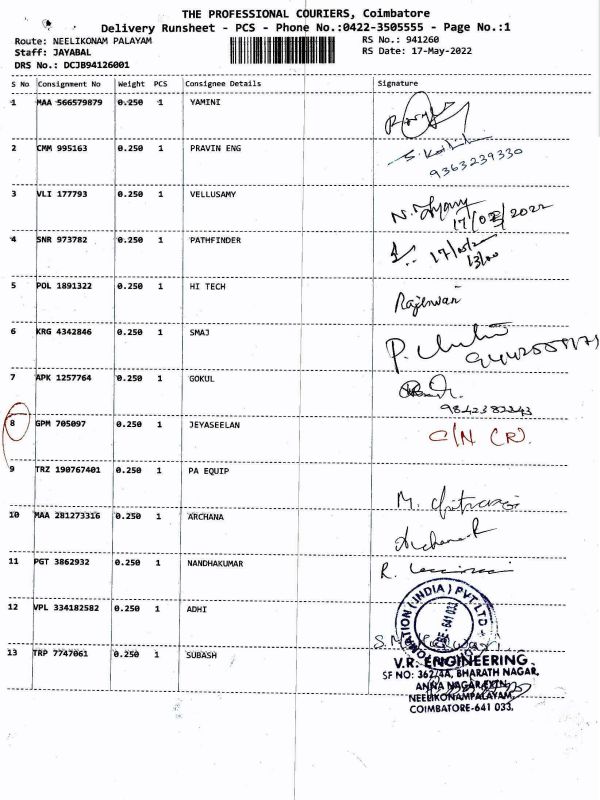 THE PROFESSIONAL COURIERS, Coimbatore
Delivery Runsheet - PCS - Phone No.:0422-3505555 - Page No.:1
Route: NEELIKONAM PALAYAM
RS No.: 941260
Staff: JAYABAL
RS Date: 17-May-2022
DRS No.: DCJB94126001
S No Consignment No Weight PCS Consignee Details Signature
1 MAA 566579879 0.250 1 YAMINI
2 CMM 995163 0.250 1 PRAVIN ENG
9363239330
3 VLI 177793 0.250 1 VELLUSAMY
17/05/2022
4 SNR 973782 0.250 1 PATHFINDER
5 POL 1891322 0.250 1 HI TECH
Rajeswari
6 KRG 4342846 0.250 1 SMAJ
7 APK 1257764 0.250 1 GOKUL
9842382343
8 GPM 705097 0.250 1 JEYASEELAN C/N (R).
9 TRZ 190767401 0.250 1 PA EQUIP
10 MAA 281273316 0.250 1 ARCHANA
Archana R
11 PGT 3862932 0.250 1 NANDHAKUMAR
12 VPL 334182582 0.250 1 ADHI
(INDIA) PVT LTD
641 033
13 TRP 7747061 0.250 1 SUBASH
V.R. ENGINEERING
SF NO: 362/4A, BHARATH NAGAR,
ANNA NAGAR EXTN,
NEELIKONAMPALAYAM,
COIMBATORE-641 033.